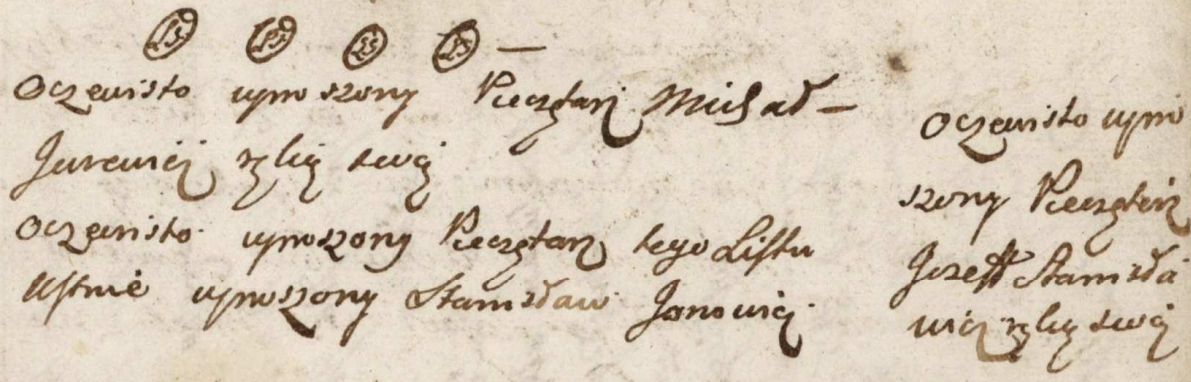 LS LS LS LS —
Oczewisto uproszony Pieczętarz Michał —
Jurewicz ręką swoją
Oczewisto uproszony Pieczętarz tego Listu
Ustnie uproszony Stanisław Janowicz
Oczewisto upro
szony Pieczętarz
Jozeff Stanisła
wicz ręką swoją